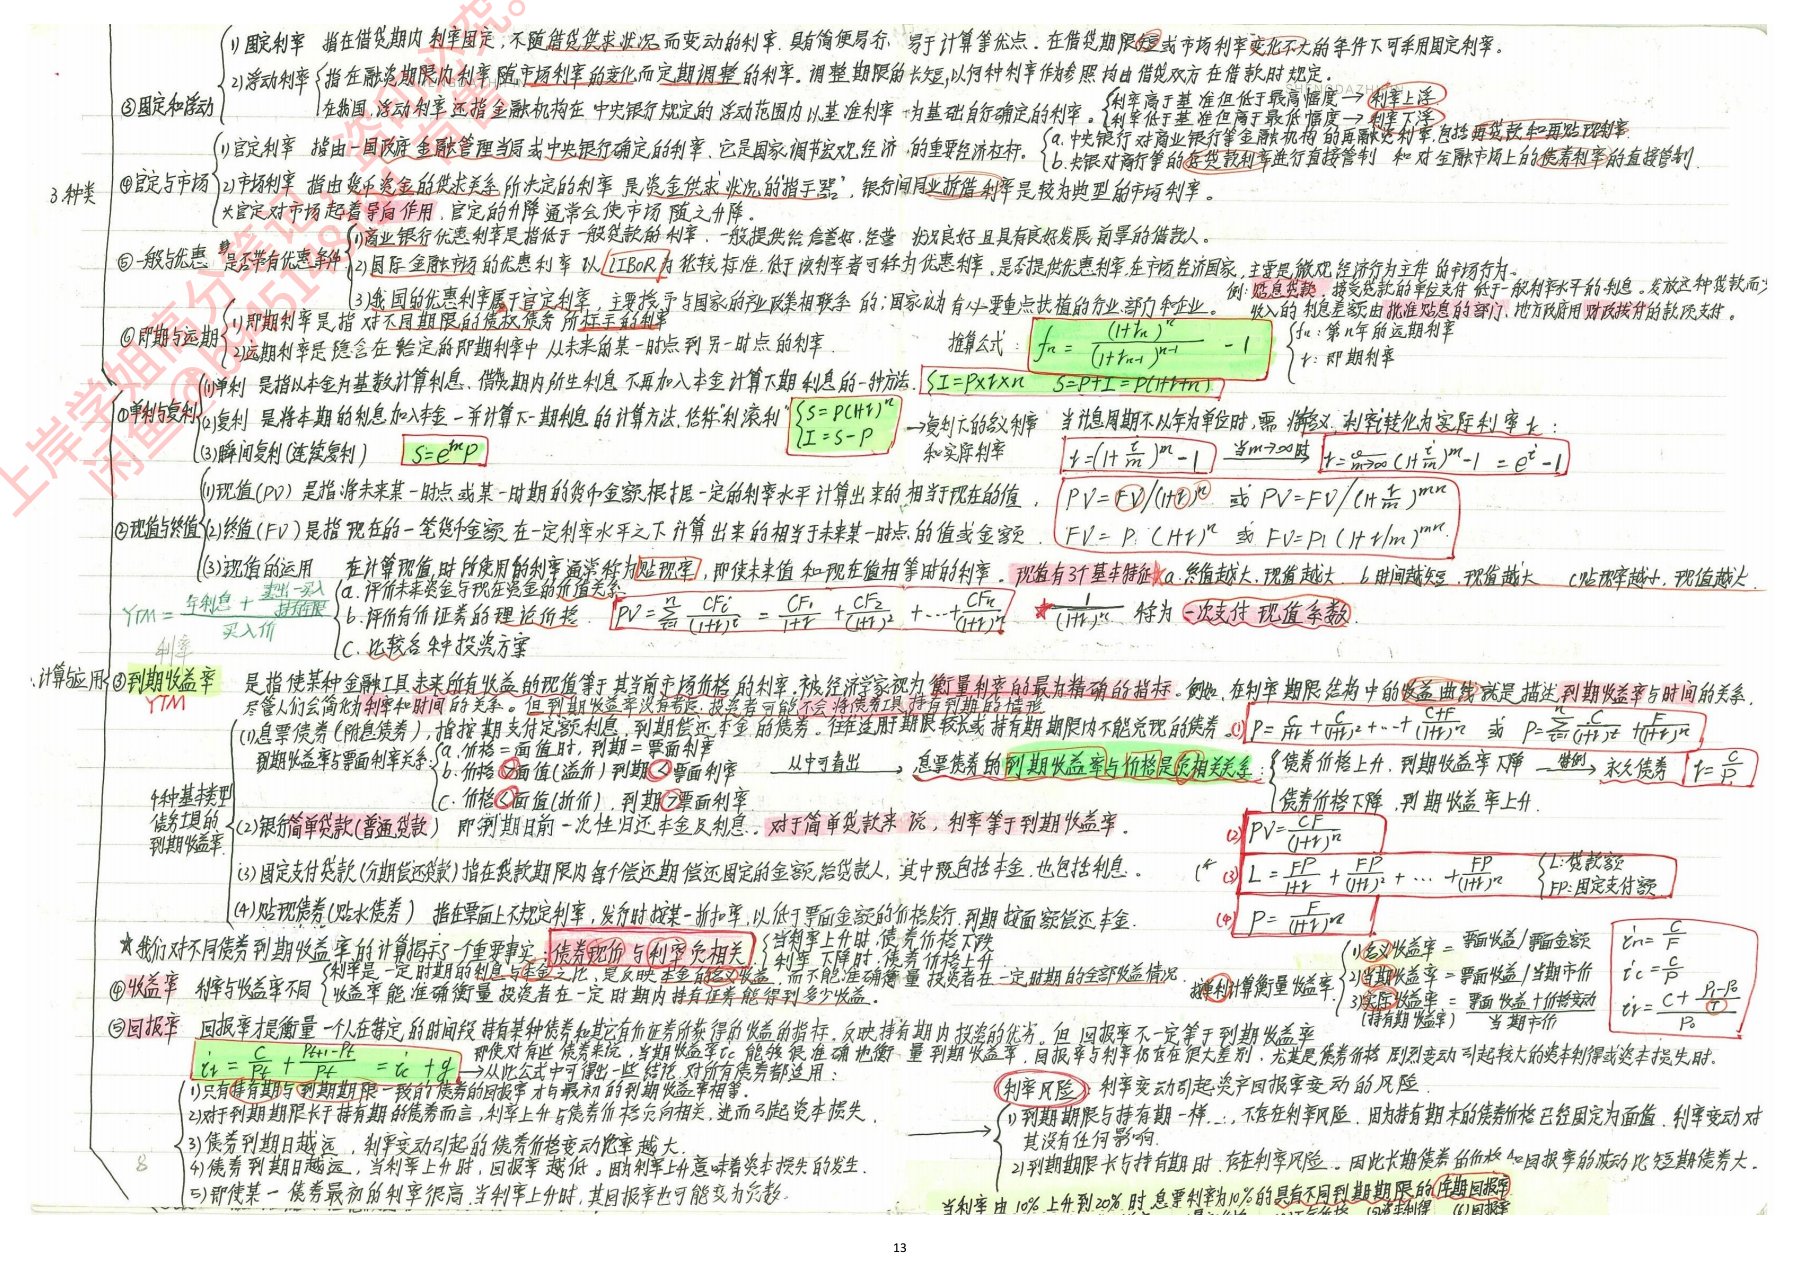 3.种类
③固定和浮动
1)固定利率 指在借贷期内利率固定,不随借贷供求状况而变动的利率.具有简便易行、易于计算等优点.在借贷期限短或市场利率变化不大的条件下可采用固定利率。
2)浮动利率 指在融资期限内利率随市场利率的变化而定期调整的利率。调整期限的长短,以何种利率作为参照均由借贷双方在借款时规定.
在我国,浮动利率还指金融机构在中央银行规定的浮动范围内以基准利率为基础自行确定的利率。
利率高于基准但低于最高幅度→利率上浮
利率低于基准但高于最低幅度→利率下浮
④官定与市场
1)官定利率 指由一国政府金融管理当局或中央银行确定的利率.它是国家调节宏观经济的重要经济杠杆。
a.中央银行对商业银行等金融机构的再融资利率,包括再贷款和再贴现利率
b.央银对商行等的存贷款利率进行直接管制 和对金融市场上的债券利率的直接管制.
2)市场利率 指由货币资金的供求关系所决定的利率 是资金供求状况的"指示器",银行间同业拆借利率是较为典型的市场利率。
*官定对市场起着导向作用,官定的升降通常会使市场随之升降。
⑤一般与优惠 是否带有优惠条件
1)商业银行优惠利率是指低于一般贷款的利率.一般提供给信誉好,经营状况良好且具有良好发展前景的借款人。
2)国际金融市场的优惠利率以LIBOR为比较标准,低于该利率者可称为优惠利率.是否提供优惠利率,在市场经济国家,主要是微观经济行为主体的市场行为。
3)我国的优惠利率属于官定利率,主要授予与国家的产业政策相联系的;国家认为有必要重点扶植的行业、部门和企业。
例:贴息贷款 接受贷款的单位支付低于一般利率水平的利息。发放这种贷款而少
收入的利息差额由批准贴息的部门、地方政府用财政拨付的款项支付。
⑥即期与远期
1)即期利率是指对不同期限的债权债务所标示的利率
2)远期利率是隐含在给定的即期利率中从未来的某一时点到另一时点的利率
推算公式: fn = (1+rn)^n / (1+rn-1)^(n-1) - 1
fn:第n年的远期利率
r:即期利率
计算与应用
①单利与复利
(1)单利 是指以本金为基数计算利息、借贷期内所生利息不再加入本金计算下期利息的一种方法. I=P×r×n S=P+I=P(1+r×n)
(2)复利 是将本期的利息加入本金一并计算下一期利息的计算方法,俗称"利滚利" S=P(1+r)^n
I=S-P
→复利下的名义利率和实际利率 当计息周期不以年为单位时,需将名义利率i转化为实际利率r:
(3)瞬间复利(连续复利) S=e^rn P
r=(1+i/m)^m-1 当m→∞时 r=lim m→∞ (1+i/m)^m-1 = e^i-1
②现值与终值
(1)现值(PV)是指将未来某一时点或某一时期的货币金额根据一定的利率水平计算出来的相当于现在的值. PV=FV/(1+r)^n 或 PV=FV/(1+r/m)^mn
(2)终值(FV)是指现在的一笔货币金额在一定利率水平之下计算出来的相当于未来某一时点的值或金额. FV=P·(1+r)^n 或 FV=P·(1+r/m)^mn
(3)现值的运用 在计算现值时所使用的利率通常称为贴现率,即使未来值和现在值相等时的利率。现值有3个基本特征 ★a.终值越大,现值越大 b.时间越短,现值越大 c.贴现率越小,现值越大.
a.评价未来资金与现在资金的价值关系
b.评价有价证券的理论价格.
c.比较各种投资方案
PV=∑ CFi/(1+r)^i = CF1/1+r + CF2/(1+r)^2 + …+ CFn/(1+r)^n
★ 1/(1+r)^n 称为一次支付现值系数.
YTM = 年利息 + 卖出-买入/持有年限 / 买入价
利率
③到期收益率
YTM
是指使某种金融工具未来所有收益的现值等于其当前市场价格的利率.被经济学家视为衡量利率的最为精确的指标。例如,在利率期限结构中的收益曲线就是描述到期收益率与时间的关系.
尽管人们会简化为利率和时间的关系。但到期收益率没有考虑,投资者可能不会将债券工具持有到期的情形
4种基本类型债务工具的到期收益率
(1)息票债券(附息债券),指按期支付定额利息,到期偿还本金的债券。往往适用于期限较长或持有期期限内不能兑现的债券。
(1) P= C/1+r + C/(1+r)^2 +…+ C+F/(1+r)^n 或 P=∑ C/(1+r)^t + F/(1+r)^n
到期收益率与票面利率关系:
a.价格=面值时,到期=票面利率
b.价格>面值(溢价)到期<票面利率
c.价格<面值(折价),到期>票面利率
从中可看出→ 息票债券的到期收益率与价格是负相关关系:
债券价格上升,到期收益率下降 特例→ 永久债券 r=C/P
债券价格下降,到期收益率上升.
(2)银行简单贷款(普通贷款) 即到期日前一次性归还本金及利息。对于简单贷款来说,利率等于到期收益率。
(2) PV=CF/(1+r)^n
(3)固定支付贷款(分期偿还贷款)指在贷款期限内每个偿还期偿还固定的金额给贷款人,其中既包括本金,也包括利息。
(3) L= FP/1+r + FP/(1+r)^2 + … + FP/(1+r)^n
L:贷款额
FP:固定支付额
(4)贴现债券(贴水债券) 指在票面上不规定利率,发行时按某一折扣率,以低于票面金额的价格发行,到期按面额偿还本金.
(4) P= F/(1+r)^n
★我们对不同债券到期收益率的计算揭示了一个重要事实:债券现价与利率负相关
当利率上升时,债券价格下跌
利率下降时,债券价格上升
④收益率 利率与收益率不同
利率是一定时期的利息与本金之比,是反映本金的名义收益,而不能准确衡量投资者在一定时期的全部收益情况.
收益率能准确衡量投资者在一定时期内持有证券能得到多少收益。
按单利计算衡量收益率
1)名义收益率 = 票面收益/票面金额
2)当期收益率 = 票面收益/当期市价
3)实际收益率 = 票面收益+价格变动/当期市价
(持有期收益率)
in=C/F
ic=C/P
ir= C+ P1-P0/T / P0
⑤回报率 回报率才是衡量一个人在特定的时间段持有某种债券和其它有价证券所获得的收益的指标.反映持有期内投资的优劣。但回报率不一定等于到期收益率
即使对有些债券来说,当期收益率ic能够很准确地衡量到期收益率,回报率与利率仍存在很大差别,尤其是债券价格剧烈变动引起较大的资本利得或资本损失时.
ir= C/Pt + Pt+1-Pt/Pt = ic+g →从此公式中可得出一些结论,对所有债券都适用:
1)只有持有期与到期期限一致的债券的回报率才与最初的到期收益率相等.
2)对于到期期限长于持有期的债券而言,利率上升与债券价格负向相关,进而引起资本损失.
3)债券到期日越远,利率变动引起的债券价格变动比率越大.
4)债券到期日越远,当利率上升时,回报率越低。因为利率上升意味着资本损失的发生.
5)即使某一债券最初的利率很高,当利率上升时,其回报率也可能变为负数.
利率风险:利率变动引起资产回报率变动的风险
1)到期期限与持有期一样∴不存在利率风险.因为持有期末的债券价格已经固定为面值.利率变动对
其没有任何影响.
2)到期期限长与持有期时,存在利率风险。因此长期债券的价格和回报率的波动比短期债券大.
当利率由10%上升到20%时,息票利率为10%的具有不同到期期限的1年期回报率
8
上岸学姐高分笔记
闲鱼@b45118184
盗印必究。
13